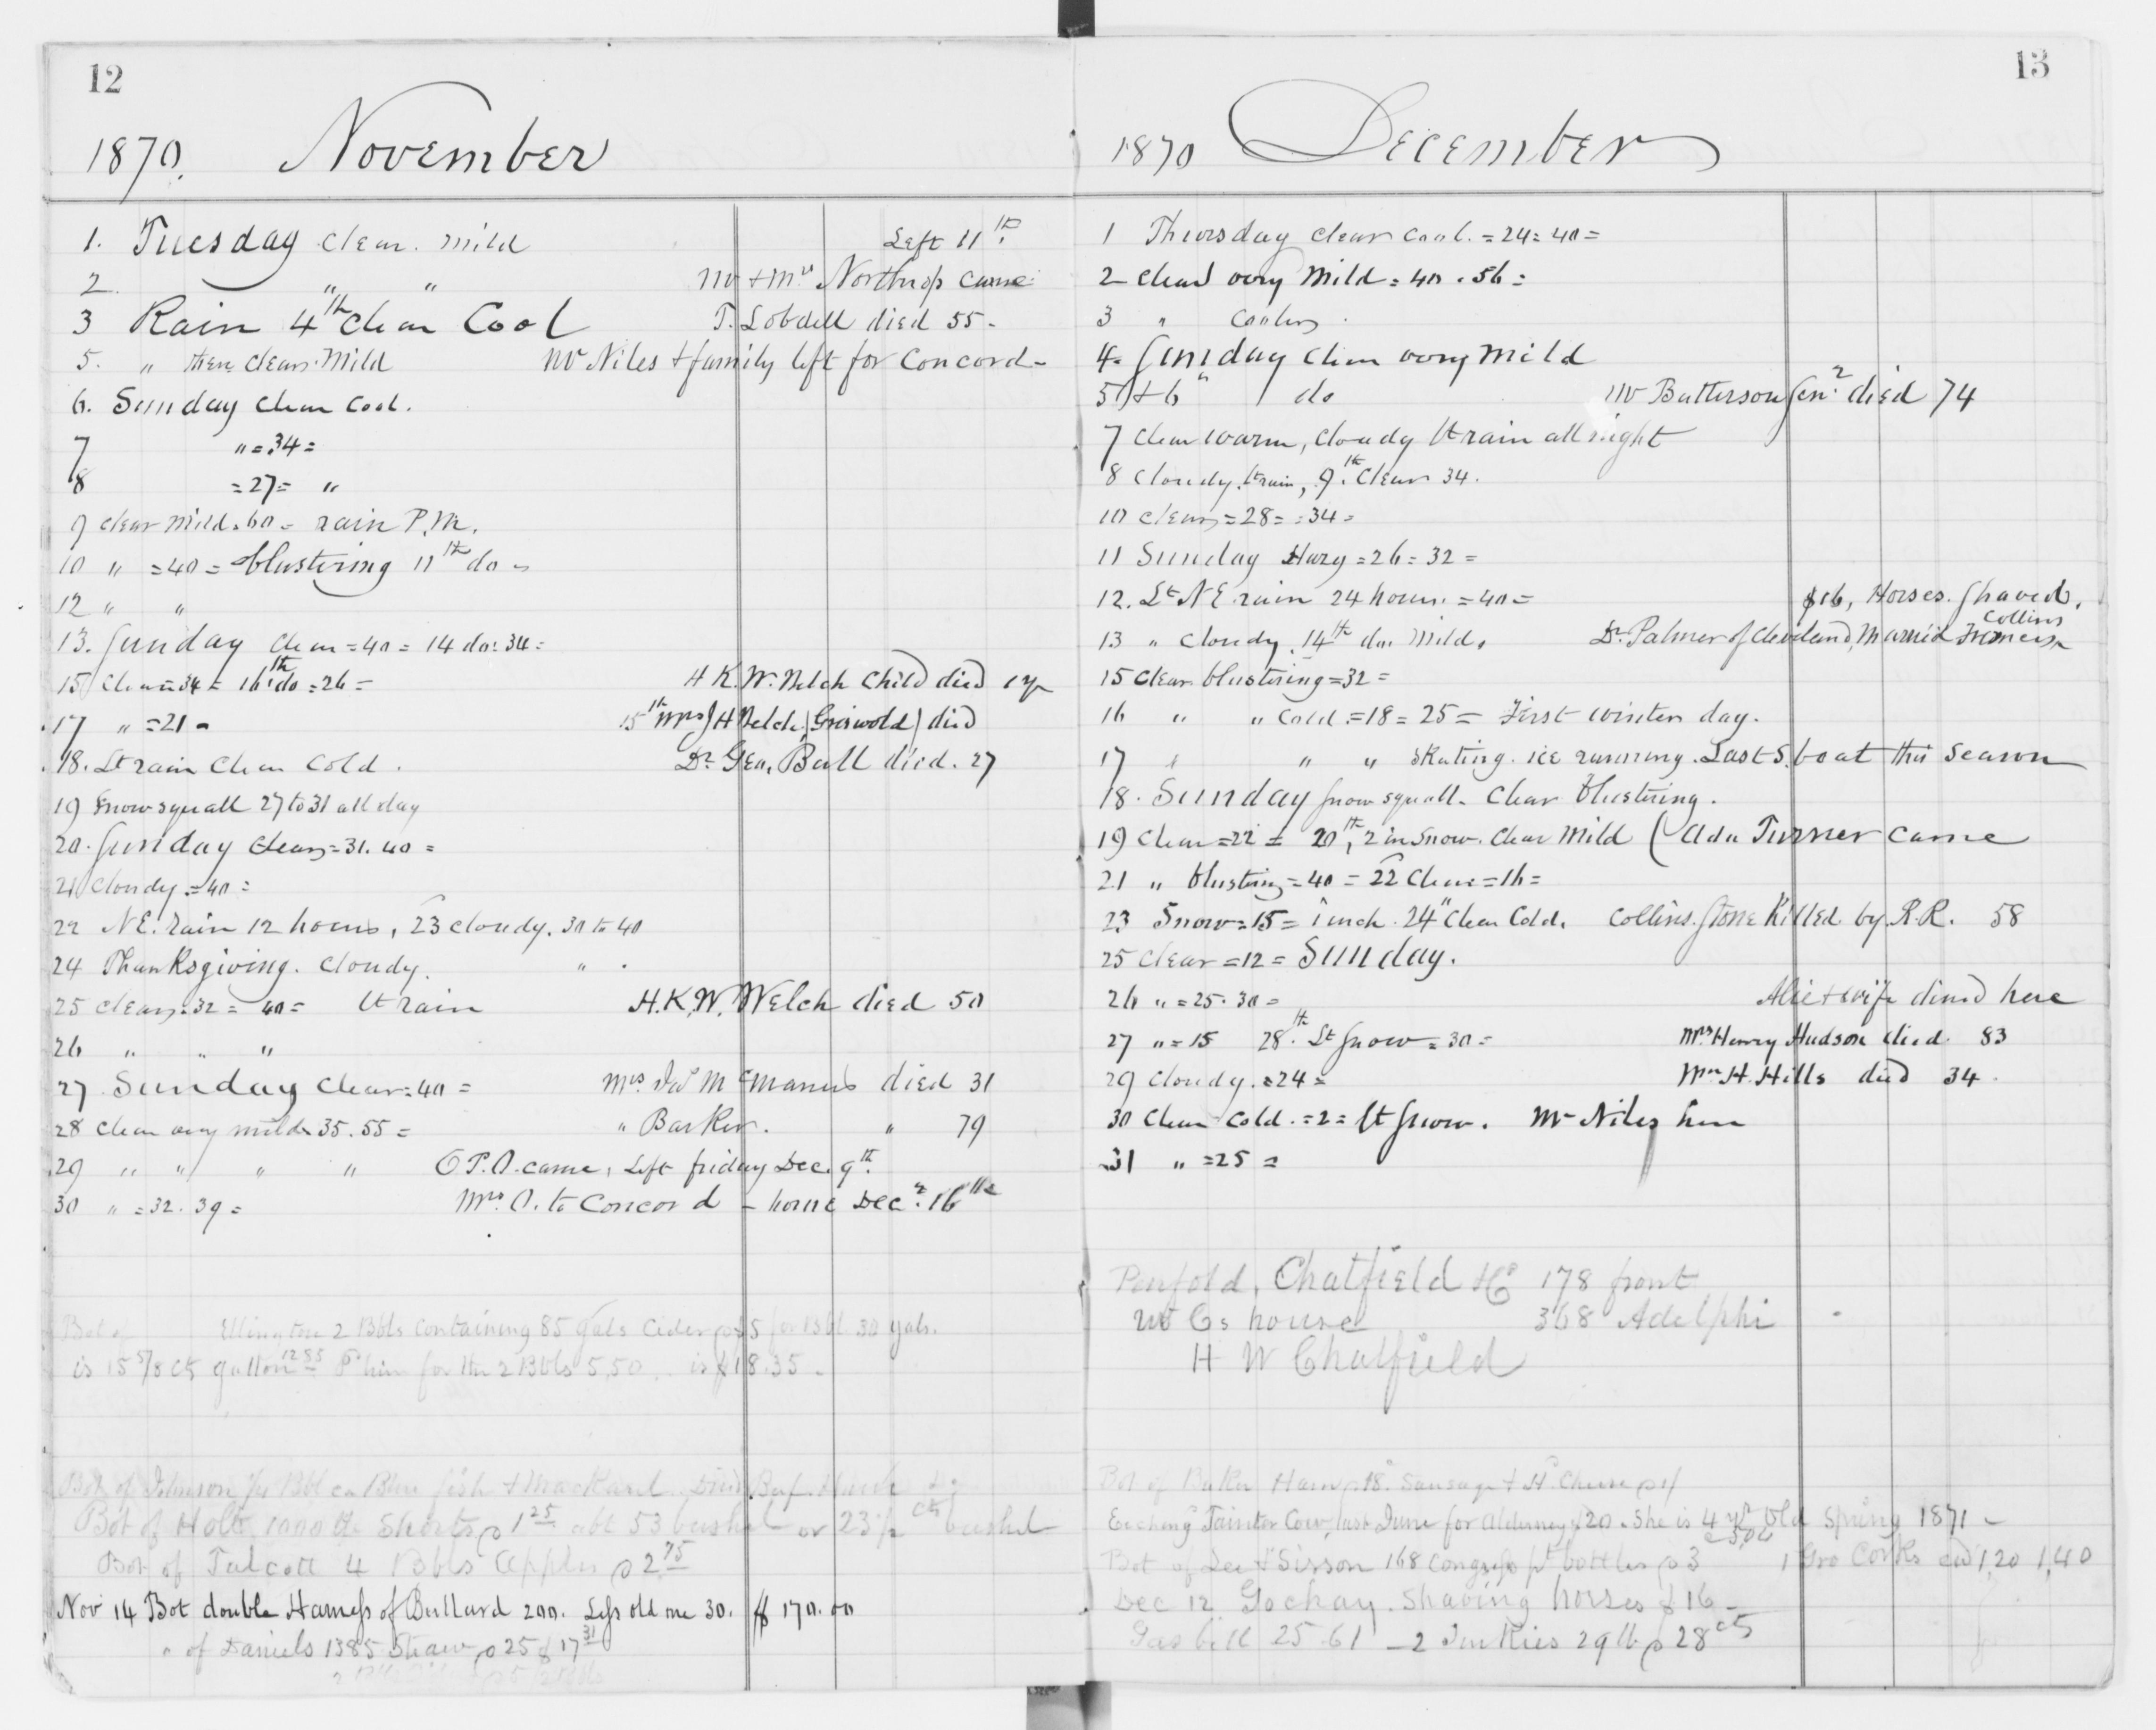 12
1870. November
1. Tuesday clear. mild Left 11th.
2. " " Mr + Mrs Northrop came
3 Rain 4th Clear Cool T. Lobdell died 55-
5. " then clear. Mild Mr Niles + family left for Concord-
6. Sunday Clear Cool.
7 " =34=
8 =27= "
9 clear mild. 60 = rain P.M.
10 " =40= blustering 11th do -
12 " "
13. Sunday Clear =40= 14 do: 34=
15 Clear =34= 16th do =26= H.K.W. Welch Child died
17 " =21- 15th Mrs J H Welch (Griswold) died
18. Lt rain Clear Cold. Dr Geo. Bull died. 27
19 Snow squall 27 to 31 all day
20. Sunday Clear =31. 40=
21 Cloudy. =40=
22 N.E. rain 12 hours, 23 cloudy. 30 to 40
24 Thanksgiving. Cloudy. "
25 clear. 32= 40= Lt rain H.K.W. Welch died 50
26 " " "
27 Sunday Clear =40= Mrs Jas McManus died 31
28 Clear very mild 35. 55= " Barker. " 79
29 " " " " O.P.A. came, Left friday Dec. 9th.
30 " =32. 39= Mrs. A. to Concord - home Decr. 16th
Bot of Ellington 2 Bbls containing 85 gals Cider @ $5 for Bbl 30 gals.
is 15 5/8 cts gallon him for the 2 Bbls 5,50 is $18.35.
Bot of Johnson Bbl ea Blue fish + Mackarel
Bot of Holt 1000 lb Shorts @ 1 25 abt 53 bushel or 23 1/2 cts bushel
Bot of Talcott 4 Bbls apples @ 2 75
Nov 14 Bot double Harness of Bullard 200. Less old one 30. $170.00
" of Daniels 1385 Straw @ 25 $17 31
13
1870 December
1 Thursday clear cool. =24=40=
2 clear very mild =40. 56=
3 " Cooler.
4. Sunday Clear very Mild
5 + 6 " do Mr Batterson Senr died 74
7 clear warm, Cloudy Lt rain all night
8 Cloudy. Lt rain, 9.th Clear 34.
10 clear =28= =34=
11 Sunday Hazy =26=32=
12. Lt N E rain 24 hours. =40= $16, Horses. Shaved.
13 " Cloudy. 14th do. Mild. Dr Palmer of Cleveland, Married Frances Collins
15 Clear. blustering =32=
16 " " Cold. =18=25= First winter day.
17 " " " Skating. ice running. Last S.boat this Season
18. Sunday Snow squall. Clear blustering.
19 Clear =22= 20th, 2 in Snow. Clear mild ( Ada Turner came
21 " blustering =40= 22 Clear =16=
23 Snow =15= 1 inch. 24" Clear Cold. Collins. Stone Killed by R.R. 58
25 Clear =12= Sunday.
26 " =25. 30= Alic + wife dined here
27 " =15 28.th Lt Snow =30= Mrs Henry Hudson died. 83
29 Cloudy. =24= Wm H. Hills died 34.
30 Clear Cold. =2= Lt Snow. Mr Niles here
31 " =25=
Penfold, Chatfield & Co 178 front
Mr Cs house 368 Adelphi
H W Chatfield
Bot of Baker Ham 18. Sausage + Hd Cheese
Exchangd Taintor Cow, last June for Alderney $20. She is 4 yrs old Spring 1871 -
Bot of Lee & Sisson 168 Congress pt bottles @ 3 1 Gro Corks 1,20 1,40
Dec 12 Gochay. Shaving horses $16-
Gas bill 25.61 - 2 Turkies 29 lb @ 28 cts